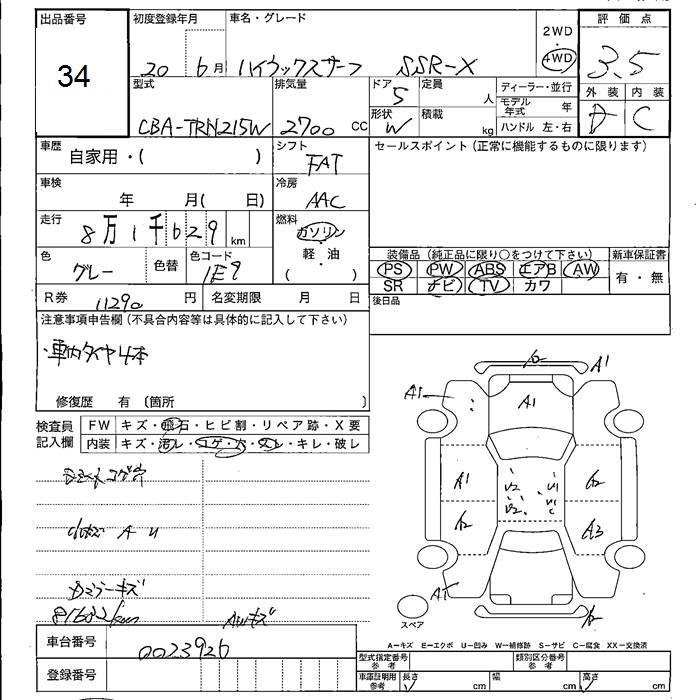 出品番号
34
初度登録年月
20 6月
車名・グレード
ハイラックスサーフ SSR-X
2WD
4WD
評価点
3.5
外装 内装
D C
型式
CBA-TRN215W
排気量
2700 cc
ドア
5
形状
W
定員
人
積載
kg
ディーラー・並行
モデル年式 年
ハンドル 左・右
車歴
自家用・( )
シフト
FAT
セールスポイント(正常に機能するものに限ります)
車検
年 月( 日)
冷房
AAC
走行
8万1千629 km
燃料
ガソリン
軽・油
( )
色
グレー
色替
色コード
1E9
装備品(純正品に限り○をつけて下さい)
PS PW ABS エアB AW
SR ナビ TV カワ
新車保証書
有・無
後日品
R券 11290 円
名変期限 月 日
注意事項申告欄(不具合内容等は具体的に記入して下さい)
・車内タイヤ4本
修復歴 有 〔箇所 〕
検査員
記入欄
FW キズ・飛石・ヒビ割・リペア跡・X要
内装 キズ・汚レ・コゲ・穴・スレ・キレ・破レ
A1
A1
A1
A1
A3
スペア
AWキズ
A=キズ E=エクボ U=凹み W=補修跡 S=サビ C=腐食 XX=交換済
車台番号
0023926
登録番号
型式指定番号
参考
類別区分番号
参考
車庫証明用
参考
長さ cm
幅 cm
高さ cm